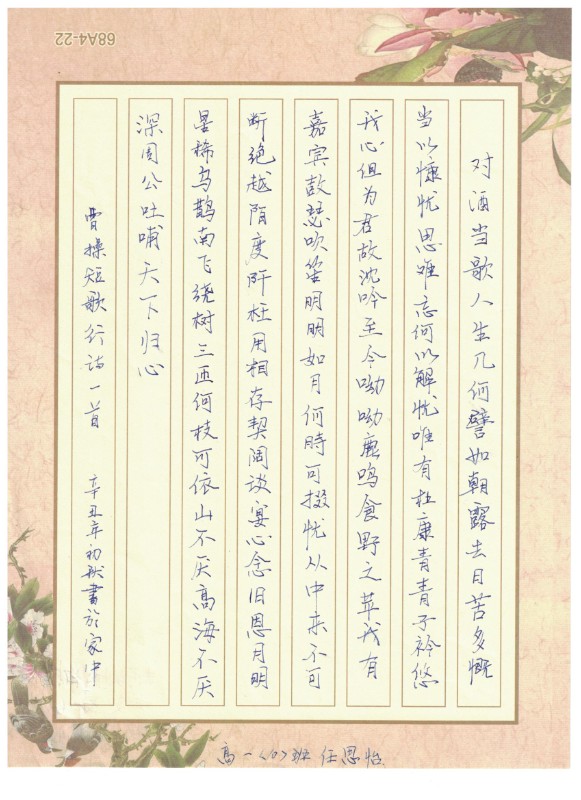 对酒当歌人生几何譬如朝露去日苦多慨
当以慷忧思难忘何以解忧唯有杜康青青子衿悠
我心但为君故沈吟至今呦呦鹿鸣食野之苹我有
嘉宾鼓瑟吹笙明明如月何時可掇忧从中来不可
断绝越陌度阡枉用相存契阔谈宴心念旧恩月明
星稀乌鹊南飞绕树三匝何枝可依山不厌高海不厌
深周公吐哺天下归心
曹操短歌行诗一首 辛丑年初秋書於家中
高一(10)班 任思怡
68A4-22